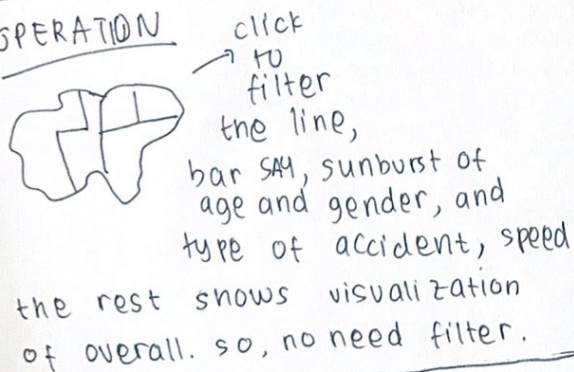 OPERATION
click
to
filter
the line,
bar SAY, sunburst of
age and gender, and
type of accident, speed
the rest shows visualization
of overall. so, no need filter.